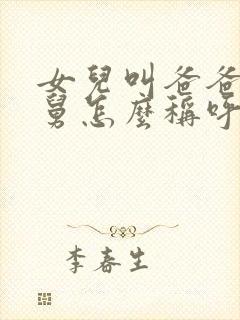 女兒叫爸爸
舅怎麼稱呼
李春生